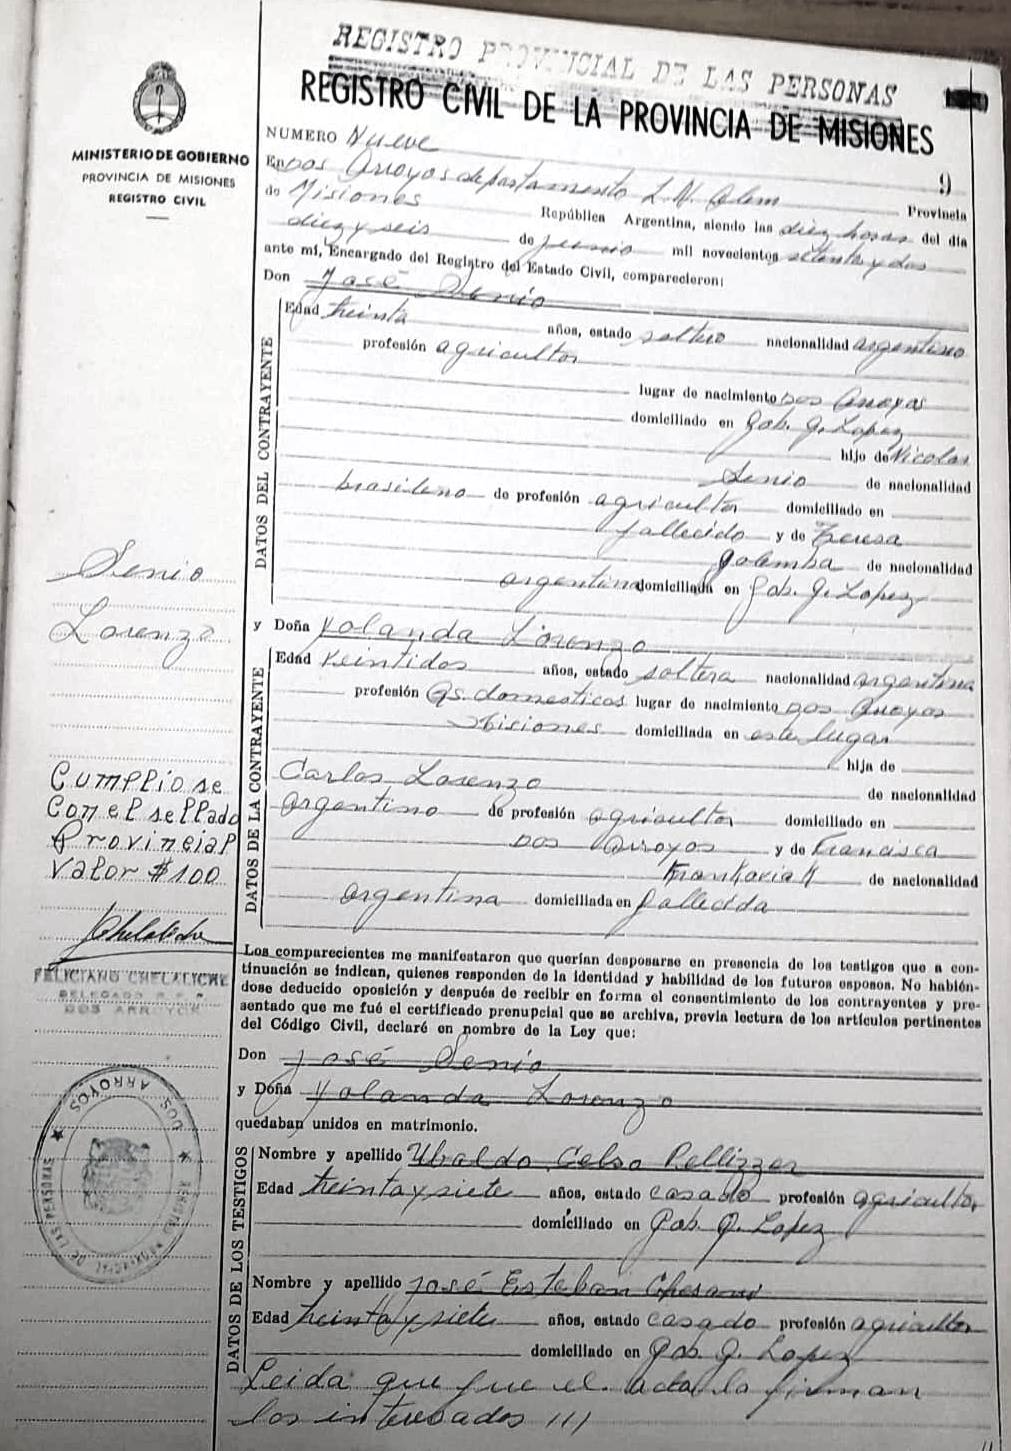 REGISTRO PROVINCIAL DE LAS PERSONAS
REGISTRO CIVIL DE LA PROVINCIA DE MISIONES
MINISTERIO DE GOBIERNO
PROVINCIA DE MISIONES
REGISTRO CIVIL
NUMERO Nueve
9
En Dos Arroyos departamento L.N. Alem Provincia
de Misiones República Argentina, siendo las diez horas del día
diez y seis de junio mil novecientos setenta y dos
ante mí, Encargado del Registro del Estado Civil, comparecieron:
Don José Senio
DATOS DEL CONTRAYENTE
Edad treinta años, estado soltero nacionalidad argentino
profesión agricultor
lugar de nacimiento Dos Arroyos
domiciliado en Gob. J. Lopez
hijo de Nicolas
Senio de nacionalidad
brasileno de profesión agricultor domiciliado en
fallecido y de Teresa
Golemba de nacionalidad
argentina domiciliada en Gob. J. Lopez
Senio
Lorenzo
y Doña Yolanda Lorenzo
DATOS DE LA CONTRAYENTE
Edad veintidos años, estado soltera nacionalidad argentina
profesión Qs. domesticos lugar de nacimiento Dos Arroyos
Misiones domiciliada en este lugar
hija de
Carlos Lorenzo de nacionalidad
argentino de profesión agricultor domiciliado en
Dos Arroyos y de Francisca
de nacionalidad
argentina domiciliada en fallecida
Cumplio se
Con el sellado
Provincial
Valor $100
FELICIANO CHELALICHE
DELEGADO R.P.P.
DOS ARROYOS
Los comparecientes me manifestaron que querían desposarse en presencia de los testigos que a con-
tinuación se indican, quienes responden de la identidad y habilidad de los futuros esposos. No habién-
dose deducido oposición y después de recibir en forma el consentimiento de los contrayentes y pre-
sentado que me fué el certificado prenupcial que se archiva, previa lectura de los artículos pertinentes
del Código Civil, declaré en nombre de la Ley que:
Don José Senio
y Doña Yolanda Lorenzo
quedaban unidos en matrimonio.
DOS ARROYOS
REGISTRO PROVINCIAL DE LAS PERSONAS
DATOS DE LOS TESTIGOS
Nombre y apellido Ubaldo Celso Pellizzer
Edad treinta y siete años, estado casado profesión agricultor
domiciliado en Gob. J. Lopez
Nombre y apellido José Esteban
Edad treinta y siete años, estado casado profesión agricultor
domiciliado en Gob. J. Lopez
Leida que fue el acta la firman
los interesados ///